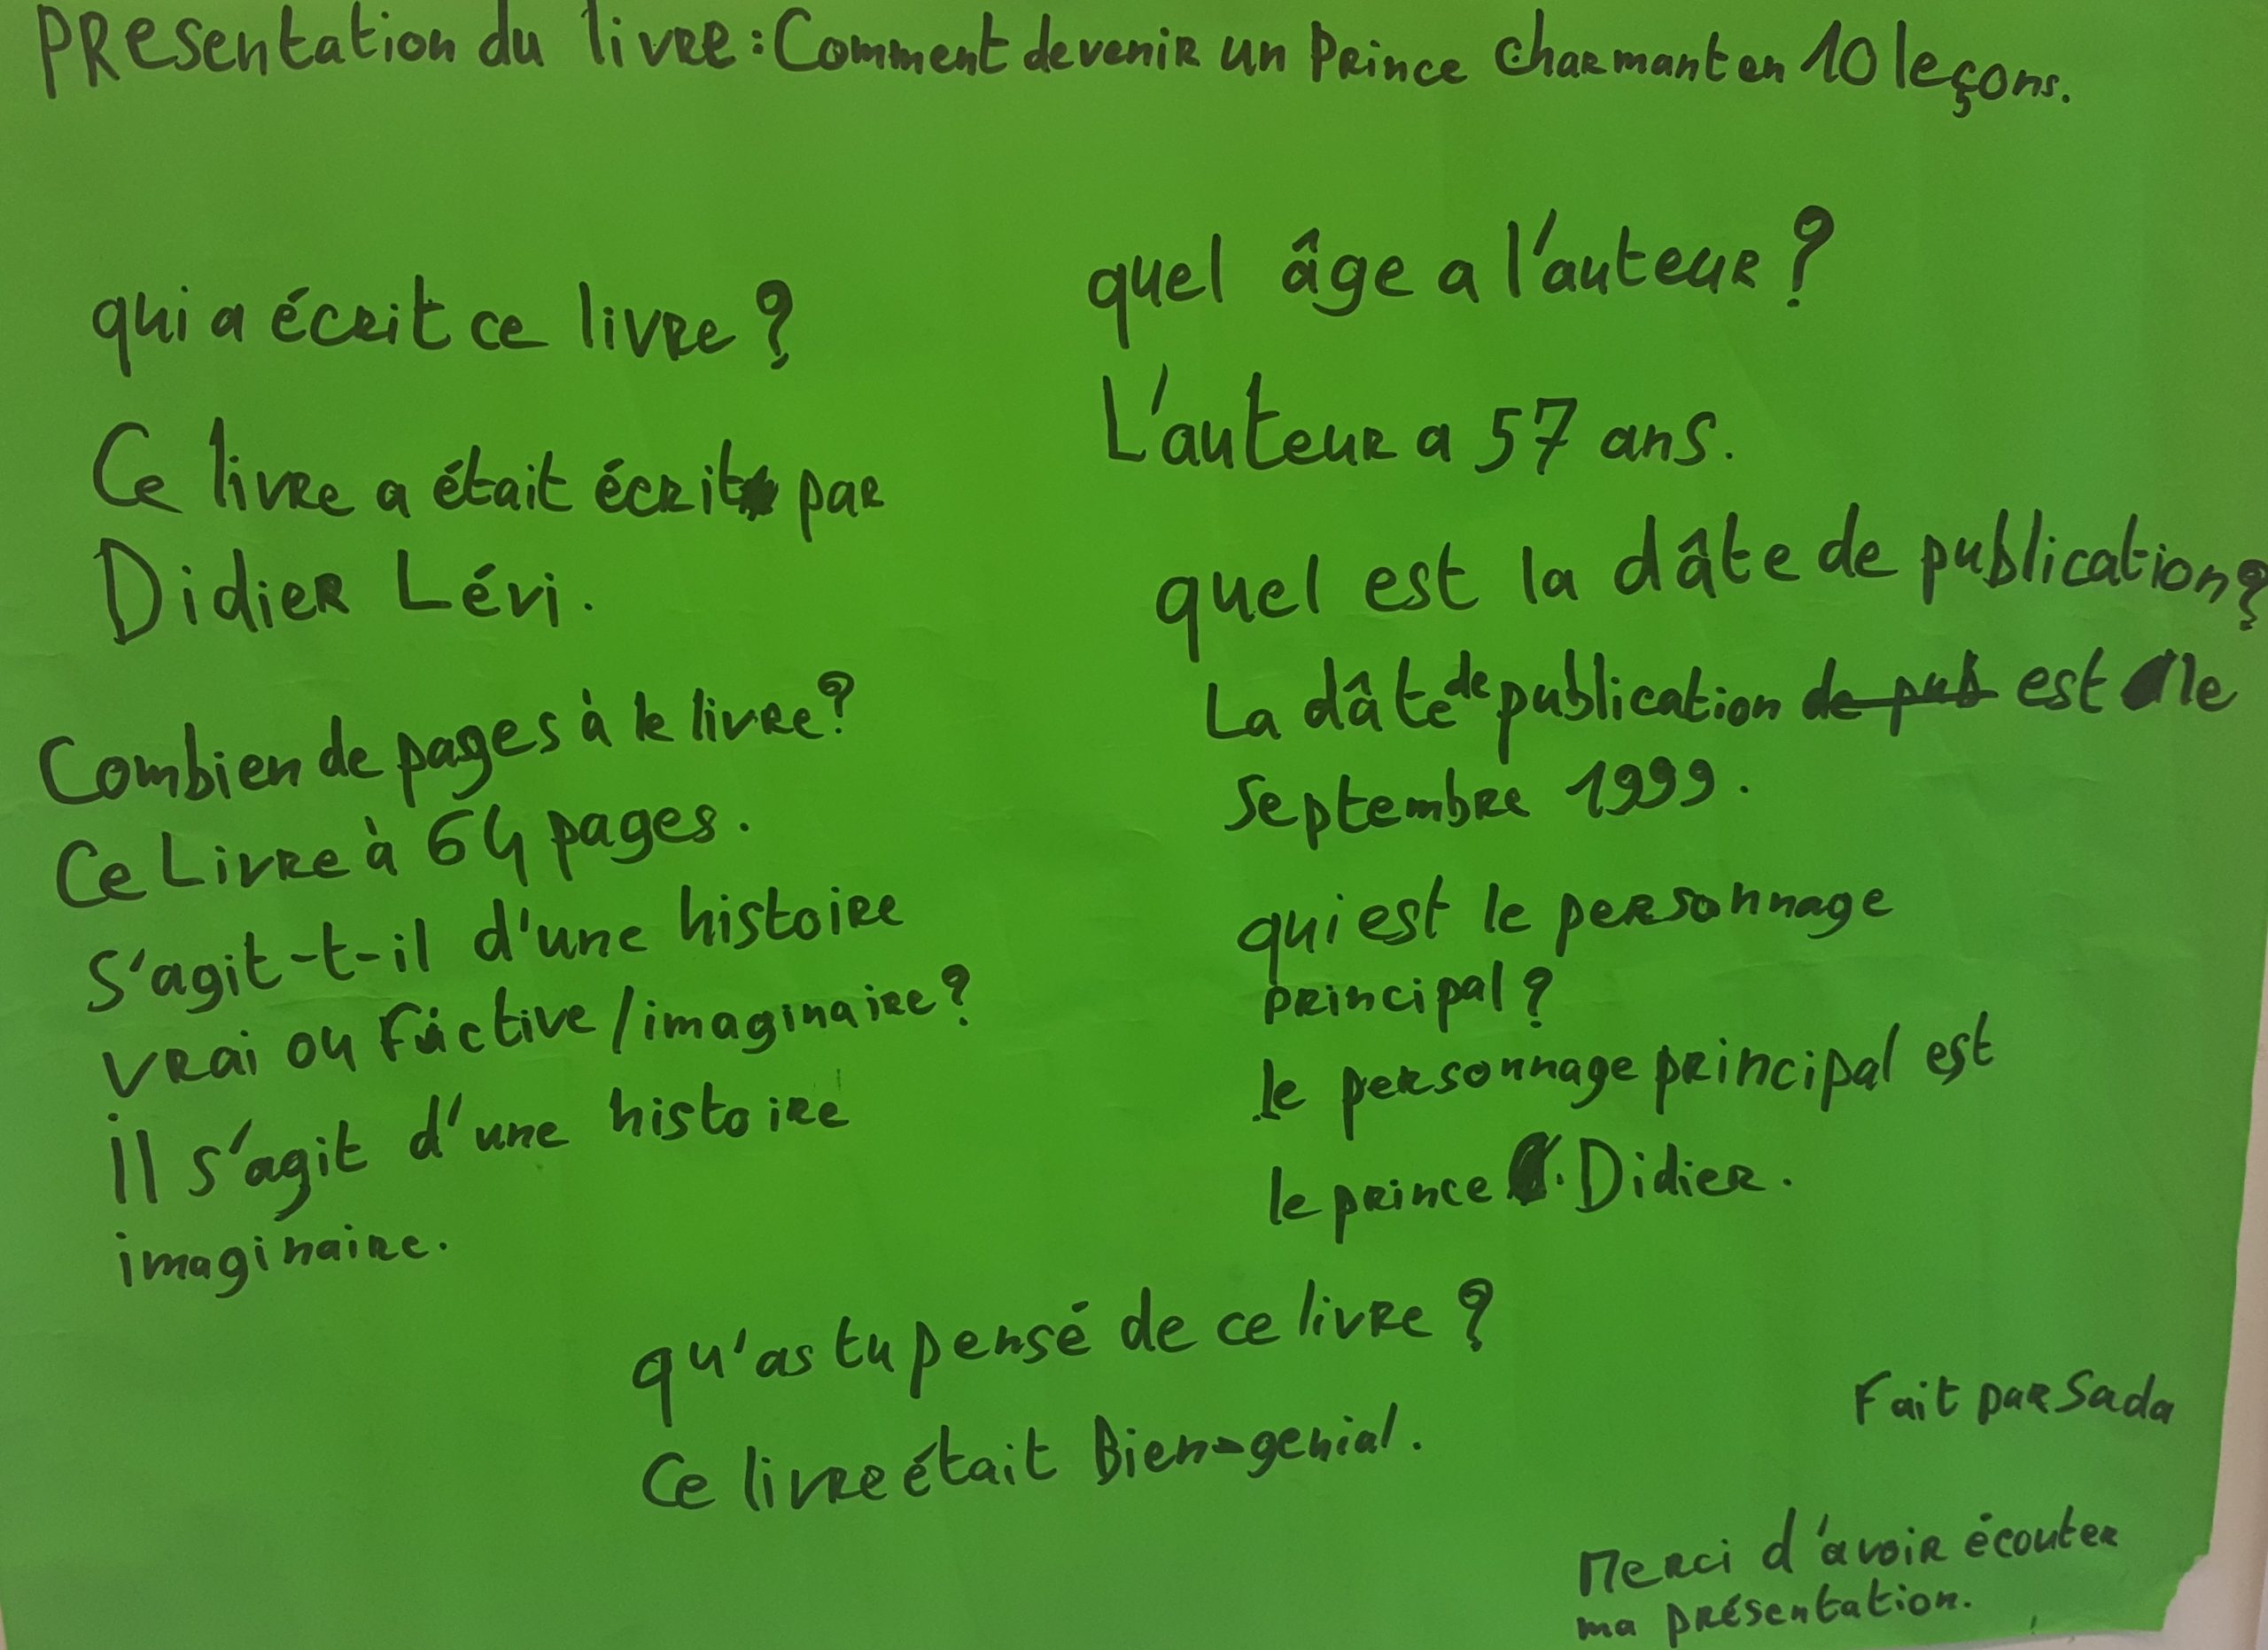 PResentation du livre : Comment devenir un Prince charmant en 10 leçons.
qui a écrit ce livre ?
Ce livre a était écrit par
Didier Lévi.
Combien de pages à le livre ?
Ce Livre à 64 pages.
S'agit-t-il d'une histoire
vrai ou fictive / imaginaire ?
il s'agit d'une histoire
imaginaire.
quel âge a l'auteur ?
L'auteur a 57 ans.
quel est la dâte de publication ?
La dâte de publication de pub est le
septembre 1999.
qui est le personnage
principal ?
le personnage principal est
le prince Didier.
qu'as tu pensé de ce livre ?
Ce livre était Bien-genial.
Fait par Sada
Merci d'avoir écouter
ma présentation.